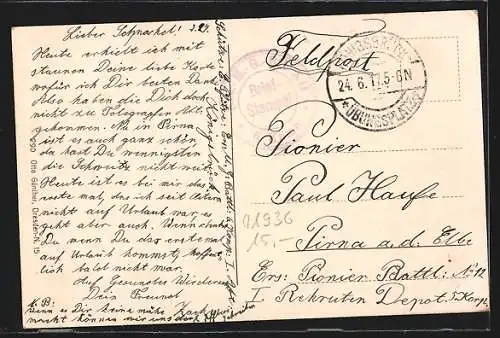 Lieber Schnackel!
Heute erhielt ich mit
staunen Deine liebe Karte
wofür ich Dir besten Dank.
Also haben die Dich doch
nicht zu Telegrafen Abt.
gekommen. Na in Pirna
ist es auch ganz schön
da hast Du wenigstens
die Schweitz nicht weit.
Heute ist es bei mir das
erste mal, das ich seit Ostern
nicht auf Urlaub war es
geht aber auch. Wenn
Du wenn Du das erstemal
auf Urlaub kommst, hoffent-
lich bald nicht war.
Auf Gesundes Wiedersehen
Dein Freund
N.B:
wenn es Dir keine mühe
macht können wir uns
990 Otto Günther, Dresden-N. 15
Feldpost
24.6.17.5-6N
ÜBUNGSPLATZ
Brief
Pionier
Paul Haufe
Pirna a.d. Elbe
Ers: Pionier Battl: No 12
I. Rekruten Depot.
91936
15,-